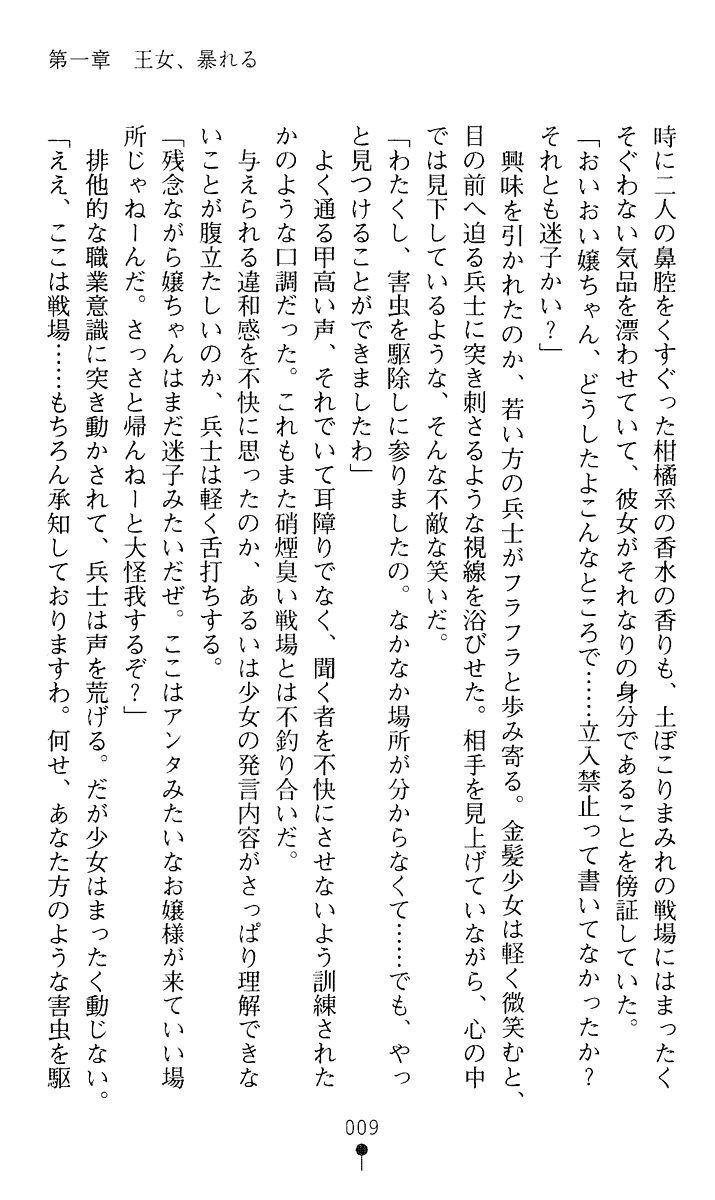 第一章　王女、暴れる
時に二人の鼻腔をくすぐった柑橘系の香水の香りも、土ぼこりまみれの戦場にはまったく
そぐわない気品を漂わせていて、彼女がそれなりの身分であることを傍証していた。
「おいおい嬢ちゃん、どうしたよこんなところで……立入禁止って書いてなかったか？
それとも迷子かい？」
　興味を引かれたのか、若い方の兵士がフラフラと歩み寄る。金髪少女は軽く微笑むと、
目の前へ迫る兵士に突き刺さるような視線を浴びせた。相手を見上げていながら、心の中
では見下しているような、そんな不敵な笑いだ。
「わたくし、害虫を駆除しに参りましたの。なかなか場所が分からなくて……でも、やっ
と見つけることができましたわ」
　よく通る甲高い声、それでいて耳障りでなく、聞く者を不快にさせないよう訓練された
かのような口調だった。これもまた硝煙臭い戦場とは不釣り合いだ。
　与えられる違和感を不快に思ったのか、あるいは少女の発言内容がさっぱり理解できな
いことが腹立たしいのか、兵士は軽く舌打ちする。
「残念ながら嬢ちゃんはまだ迷子みたいだぜ。ここはアンタみたいなお嬢様が来ていい場
所じゃねーんだ。さっさと帰んねーと大怪我するぞ？」
　排他的な職業意識に突き動かされて、兵士は声を荒げる。だが少女はまったく動じない。
「ええ、ここは戦場……もちろん承知しておりますわ。何せ、あなた方のような害虫を駆
009